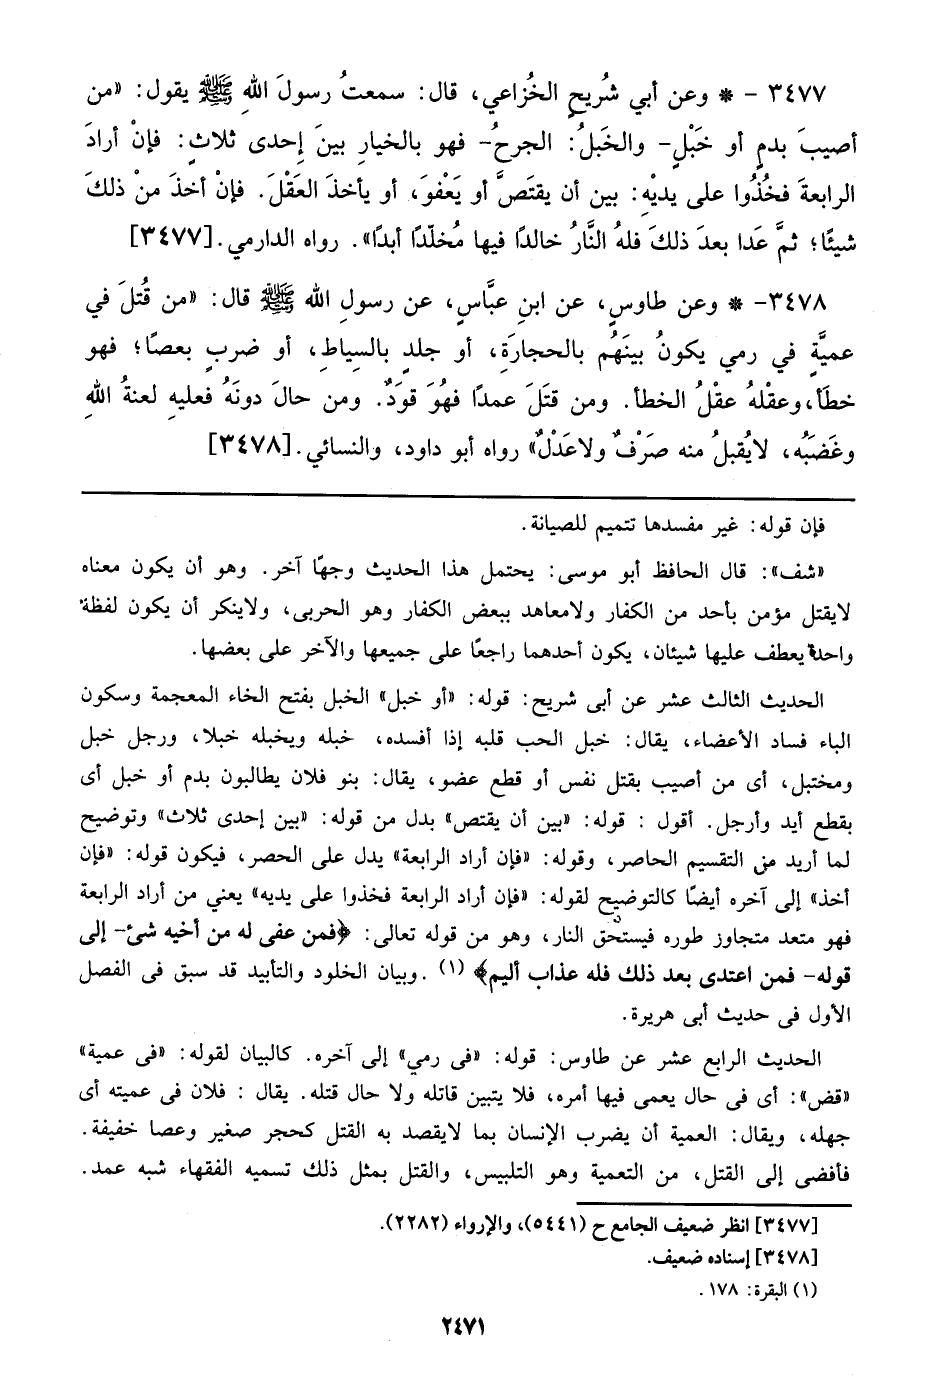 ٣٤٧٧ – * وعن أبي شُريحٍ الخُزاعي، قال: سمعتُ رسولَ اللهِ ﷺ يقول: «من
أصيبَ بدمٍ أو خَبْلٍ- والخَبلُ: الجرحُ- فهو بالخيارِ بينَ إحدى ثلاثٍ: فإنْ أرادَ
الرابعةَ فخُذُوا على يديْهِ: بين أن يقتَصَّ أو يَعْفوَ، أو يأخذَ العَقْلَ. فإنْ أخذَ منْ ذلكَ
شيئًا؛ ثمَّ عَدا بعدَ ذلكَ فلهُ النَّارُ خالدًا فيها مُخلّدًا أبدًا». رواه الدارمي.[٣٤٧٧]
٣٤٧٨- * وعن طاوسٍ، عن ابنِ عبَّاسٍ، عن رسولِ الله ﷺ قال: «من قُتلَ في
عميَّةٍ في رمي يكونُ بينَهُم بالحجارَةِ، أو جلدٍ بالسِياطِ، أو ضربٍ بعصًا؛ فهو
خطَأ،وعقْلهُ عقْلُ الخطأ. ومن قتَلَ عمدًا فهُوَ قودٌ. ومن حالَ دونَهُ فعليهِ لعنةُ اللهِ
وغَضَبُه، لايُقبلُ منه صرْفٌ ولاعَدْلٌ» رواه أبو داود، والنسائي.[٣٤٧٨]
فإن قوله: غير مفسدها تتميم للصيانة.
«شف»: قال الحافظ أبو موسى: يحتمل هذا الحديث وجهًا آخر. وهو أن يكون معناه
لايقتل مؤمن بأحد من الكفار ولامعاهد ببعض الكفار وهو الحربى، ولاينكر أن يكون لفظة
واحدة يعطف عليها شيئان، يكون أحدهما راجعًا على جميعها والآخر على بعضها.
الحديث الثالث عشر عن أبى شريح: قوله: «أو خبل» الخبل بفتح الخاء المعجمة وسكون
الباء فساد الأعضاء، يقال: خبل الحب قلبه إذا أفسده، خبله ويخبله خبلا، ورجل خبل
ومختبل، أى من أصيب بقتل نفس أو قطع عضو، يقال: بنو فلان يطالبون بدم أو خبل أى
بقطع أيد وأرجل. أقول : قوله: «بين أن يقتص» بدل من قوله: «بين إحدى ثلاث» وتوضيح
لما أريد من التقسيم الحاصر، وقوله: «فإن أراد الرابعة» يدل على الحصر، فيكون قوله: «فإن
أخذ» إلى آخره أيضًا كالتوضيح لقوله: «فإن أراد الرابعة فخذوا على يديه» يعني من أراد الرابعة
فهو متعد متجاوز طوره فيستحق النار، وهو من قوله تعالى: ﴿فمن عفى له من أخيه شئ- إلى
قوله- فمن اعتدى بعد ذلك فله عذاب أليم﴾ (١) .وبيان الخلود والتأبيد قد سبق فى الفصل
الأول فى حديث أبى هريرة.
الحديث الرابع عشر عن طاوس: قوله: «فى رمي» إلى آخره. كالبيان لقوله: «فى عمية»
«قض»: أى فى حال يعمى فيها أمره، فلا يتبين قاتله ولا حال قتله. يقال : فلان فى عميته أى
جهله، ويقال: العمية أن يضرب الإنسان بما لايقصد به القتل كحجر صغير وعصا خفيفة.
فأفضى إلى القتل، من التعمية وهو التلبيس، والقتل بمثل ذلك تسميه الفقهاء شبه عمد.
[٣٤٧٧] انظر ضعيف الجامع ح (٥٤٤١)، والإرواء (٢٢٨٢).
[٣٤٧٨] إسناده ضعيف.
(١) البقرة: ١٧٨ .
٢٤٧١